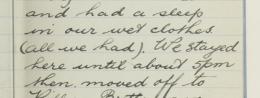 and had a sleep
in our wet clothes
(all we had). We stayed
here until about 5pm
then moved off to